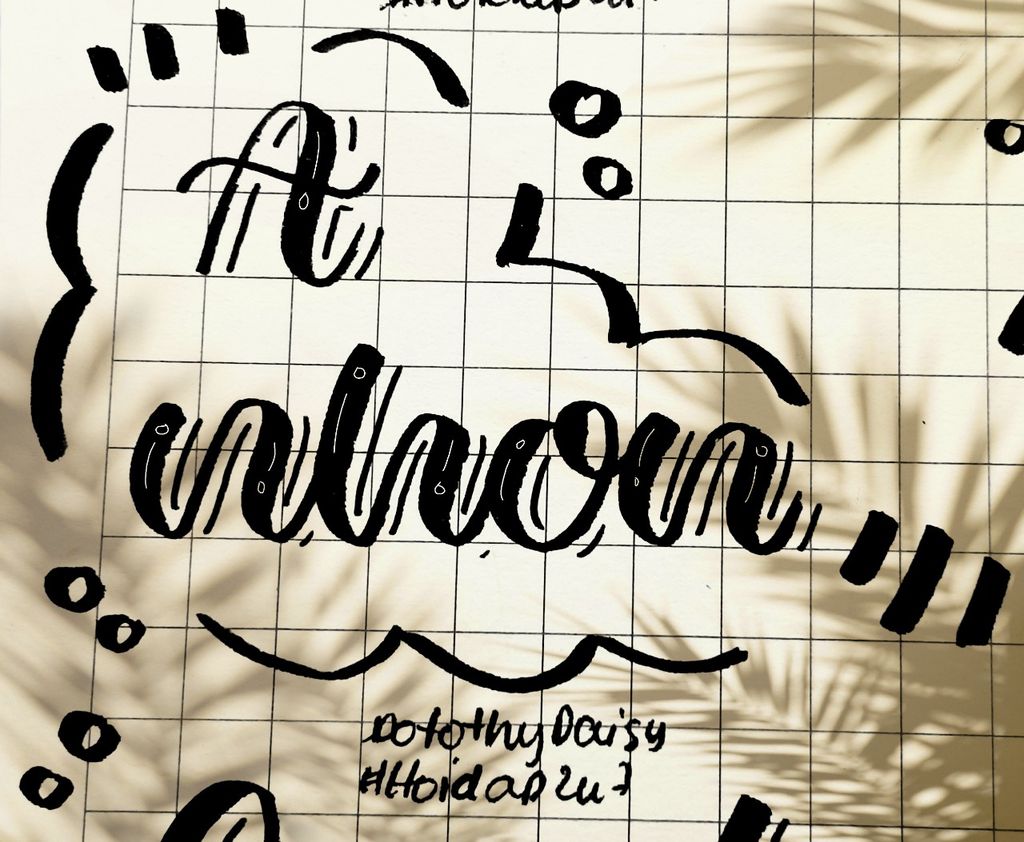 A
nhon
DorothyDaisy
#Hoidap2u7